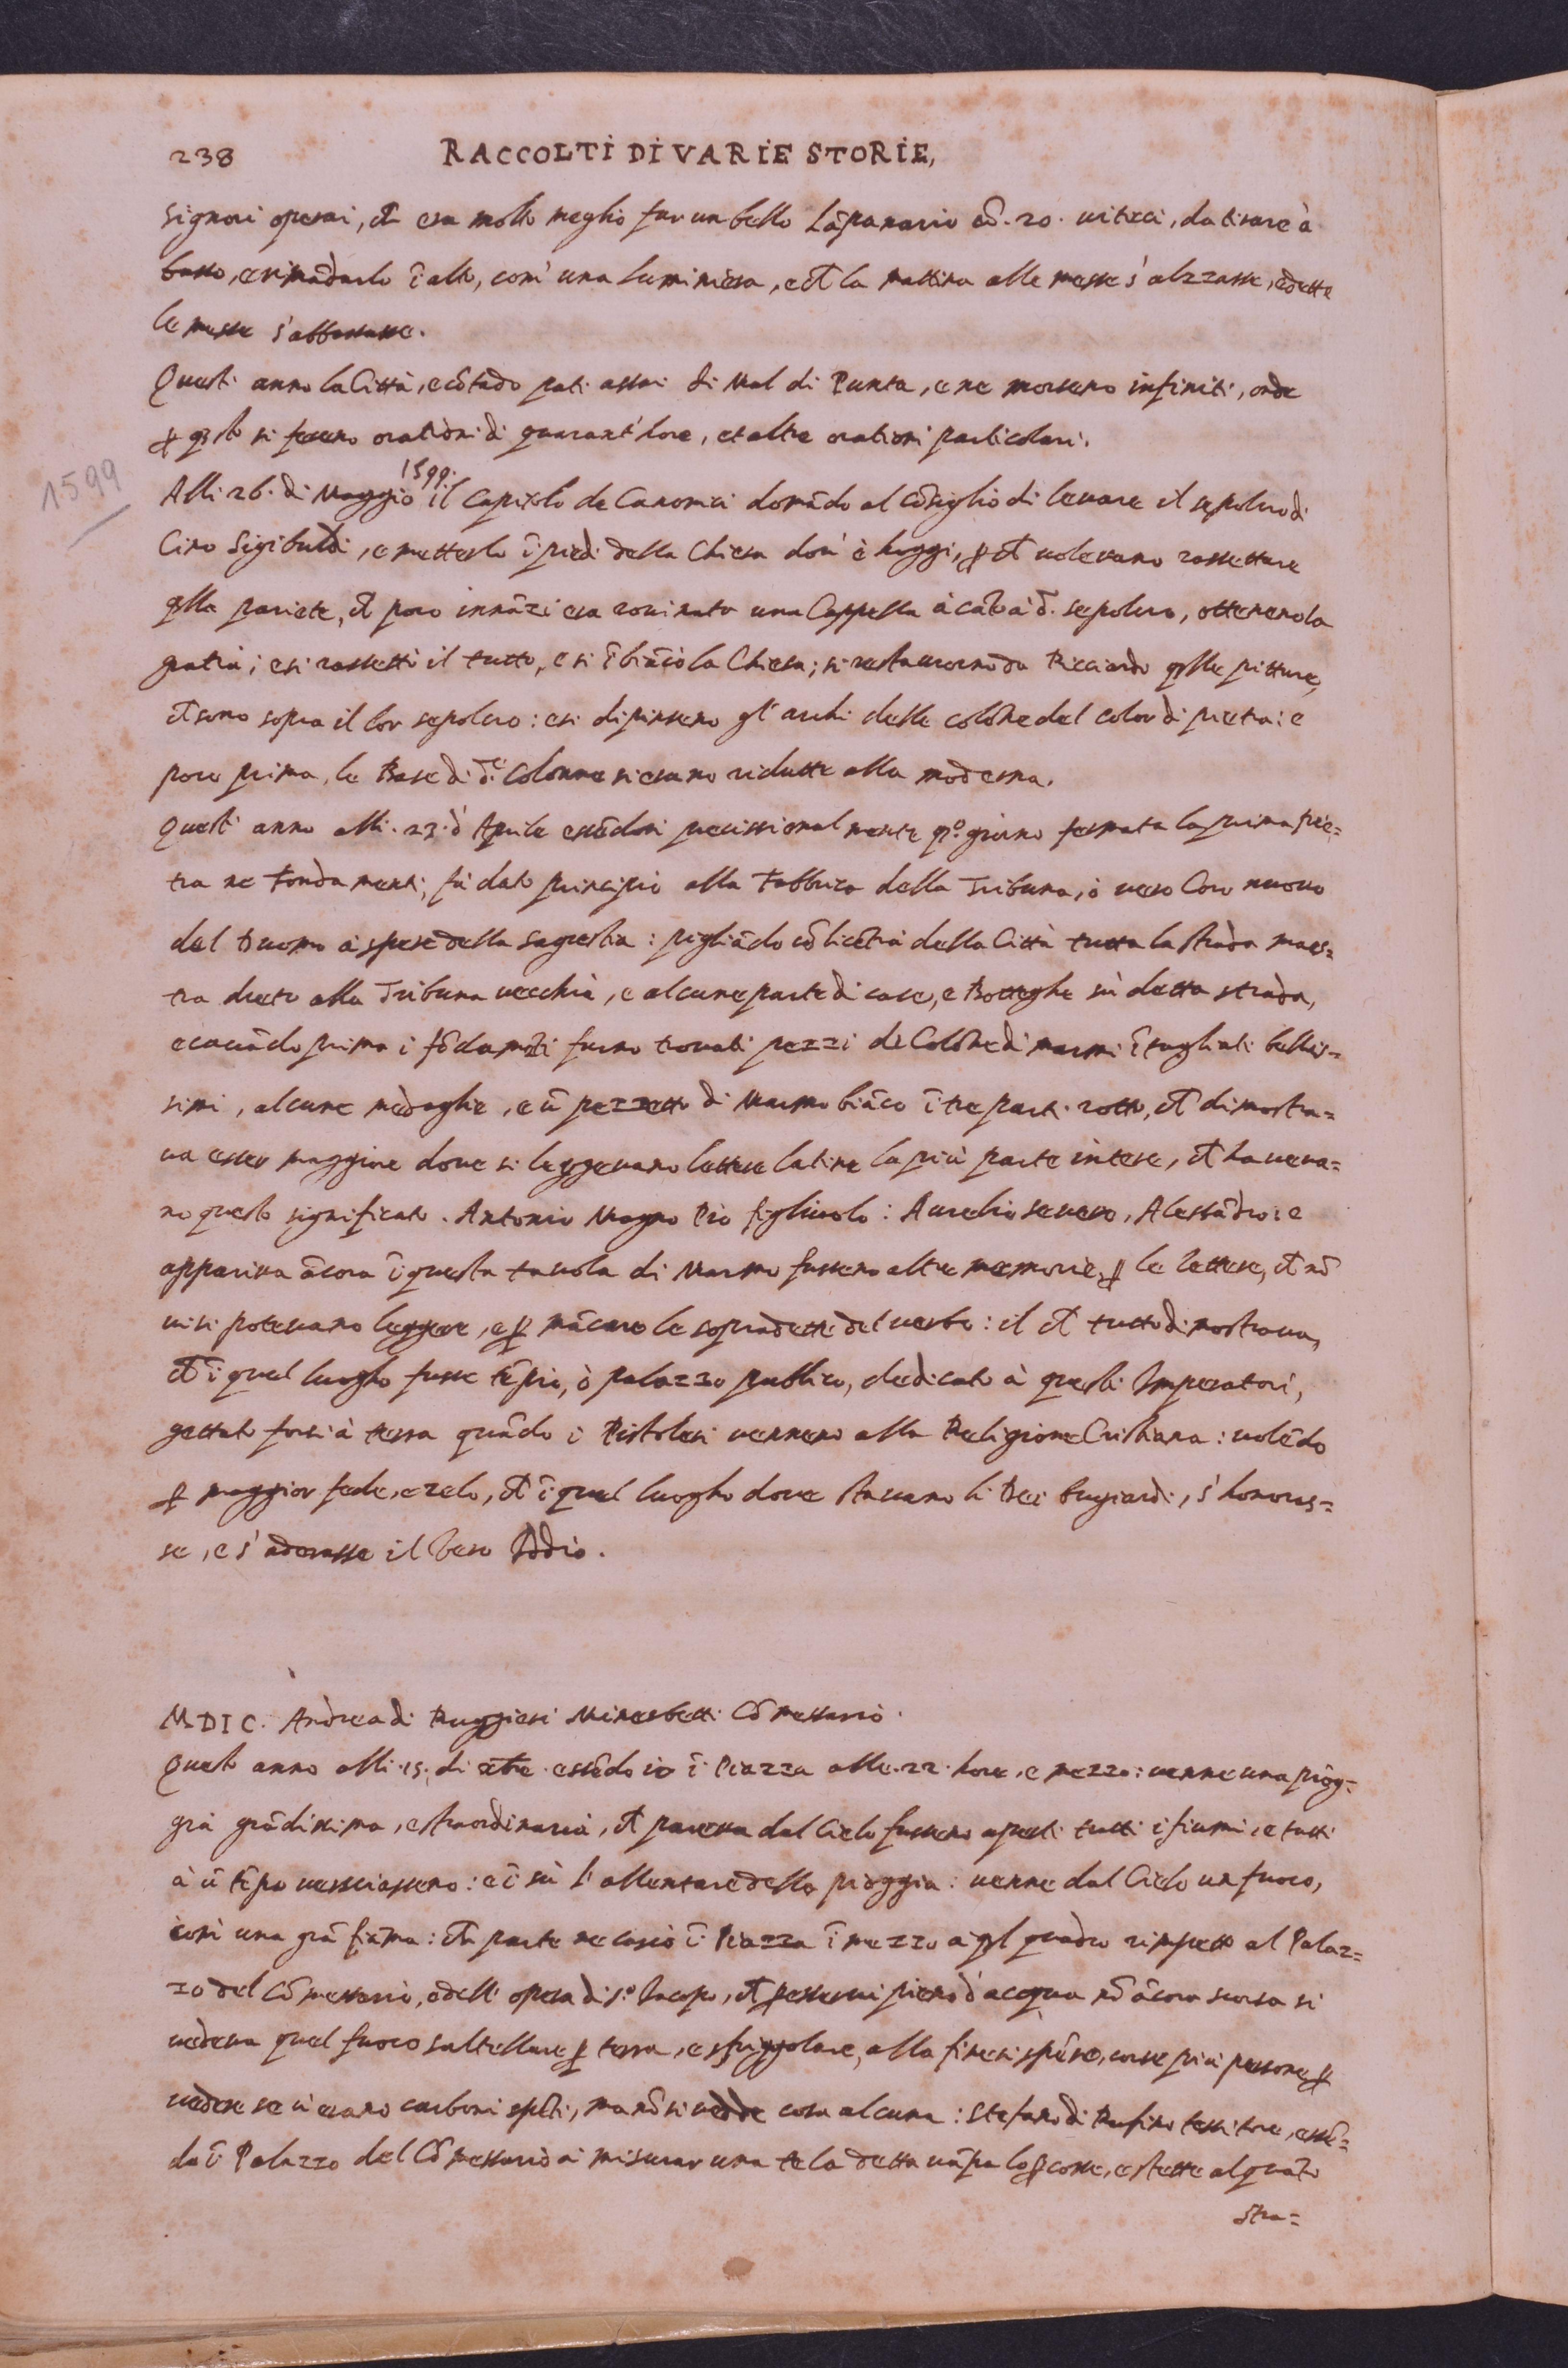 238 RACCOLTI DI VARIE STORIE,
signori operai, che era molto meglio far un bello Lāpanario cō .20. viticci, da tirare à
basso, e rimādarlo ī alto, com' una luminiera, e che la mattina alle messe s' alzzasse, e dette
le messe s' abbassasse.
Questi anno la Città, e cōtado pati assai di Mal di Punta, e ne morseno infiniti, onde
ꝑ qsto si feceno orationi di quarant' hore, et altre orationi particolari.
1599
Alli 26. di Maggio 1599. il Capitolo de Canonici domādo al cōsiglio di levare il sepolcro di
Cino Sigibuldi, e metterlo ī piedi della Chiesa dov' è hoggi, ꝑ che volevano rassettare
qlla pariete, che poco innāzi era rovinata una Cappella à cāto à d. sepolcro, ottenenola
gratia; e si rassettò il tutto, e si ībiācò la Chiesa; si restaurorno da Ricciardo qlle pitture,
che sono sopra il lor sepolcro: e si dipinseno gl' archi delle colōne del color di pietra: e
poco prima, le Base di dte Colonne si erano ridutte alla moderna.
Questi anno alli .23. d' Aprile essēdosi precissionalmente qo. giorno fermata la prima pie=
tra ne fondamenti, fù dato principio alla Fabbrica della Tribuna, ò vero Coro nuovo
del Duomo à spese della Sagrestia: pigliādo cō licētia della Città tutta la strada maes=
tra dreto alla Tribuna vecchia, e alcune parte di case, e Botteghe sù detta strada,
e cavādo prima i fōdamēti furno trovati pezzi di Colōne di marmi ītagliati bellis=
simi, alcune medaglie, e ū pezzetto di Marmo biāco ī tre parti rotto, che dimostra=
va esser maggiore dove si leggevano lettere latine la più parte intere, che haveva=
no questo significato. Antonio Magno Pio figliuolo: Aurelio Severo, Alessādro: e
appariva ācora ī questa tavola di Marmo fusseno altre memorie, ꝑ le lettere, che nō
vi si potevano leggere, e ꝑ mācare le sopradette del verbo: il che tutto dimostrava,
che ī quel luogho fusse tēpio, ò palazzo publico, dedicato à questi Imperatori,
gettato forsi à terra quādo i Pistolesi venneno alla Religione Cristiana: volēdo
ꝑ maggior fede, e zelo, che ī quel luogho dove stavano li Dei bugiardi, s' honoras=
se, e s' adorasse il Vero Iddio.
MDIC. Andrea di Ruggieri Minerbetti Cōmessario.
Questo anno alli .15. di essēdo io ī Piazza alle .22. hore, e mezzo: venne una piog=
gia grādissima, e straordinaria, che pareva dal Cielo fusseno aperti tutti i fiumi, e tutti
à ū tēpo versciasseno: e ī sù l' allentare della pioggia: venne dal Cielo un fuoco,
com' una grā fiāma: che parte ne cascò ī Piazza ī mezzo a ql quadro rimpetto al Palaz=
zo del Cōmessario, e dell' opera di so. Iacopo, che ꝑ esservi pieno d' acqua nō ācora scorsa si
vedeva quel fuoco saltellare ꝑ terra, e sfriggolare, alla fine si spēse, corse più persone ꝑ
vedere se vi erano carboni spēti, ma nō si vedde cosa alcuna: Stefano di Rufino tessitore, essē=
do ī Palazzo del Cōmessario à misurar una tela detta vāpa lo ꝑcosse, e stette alquāto
stra=